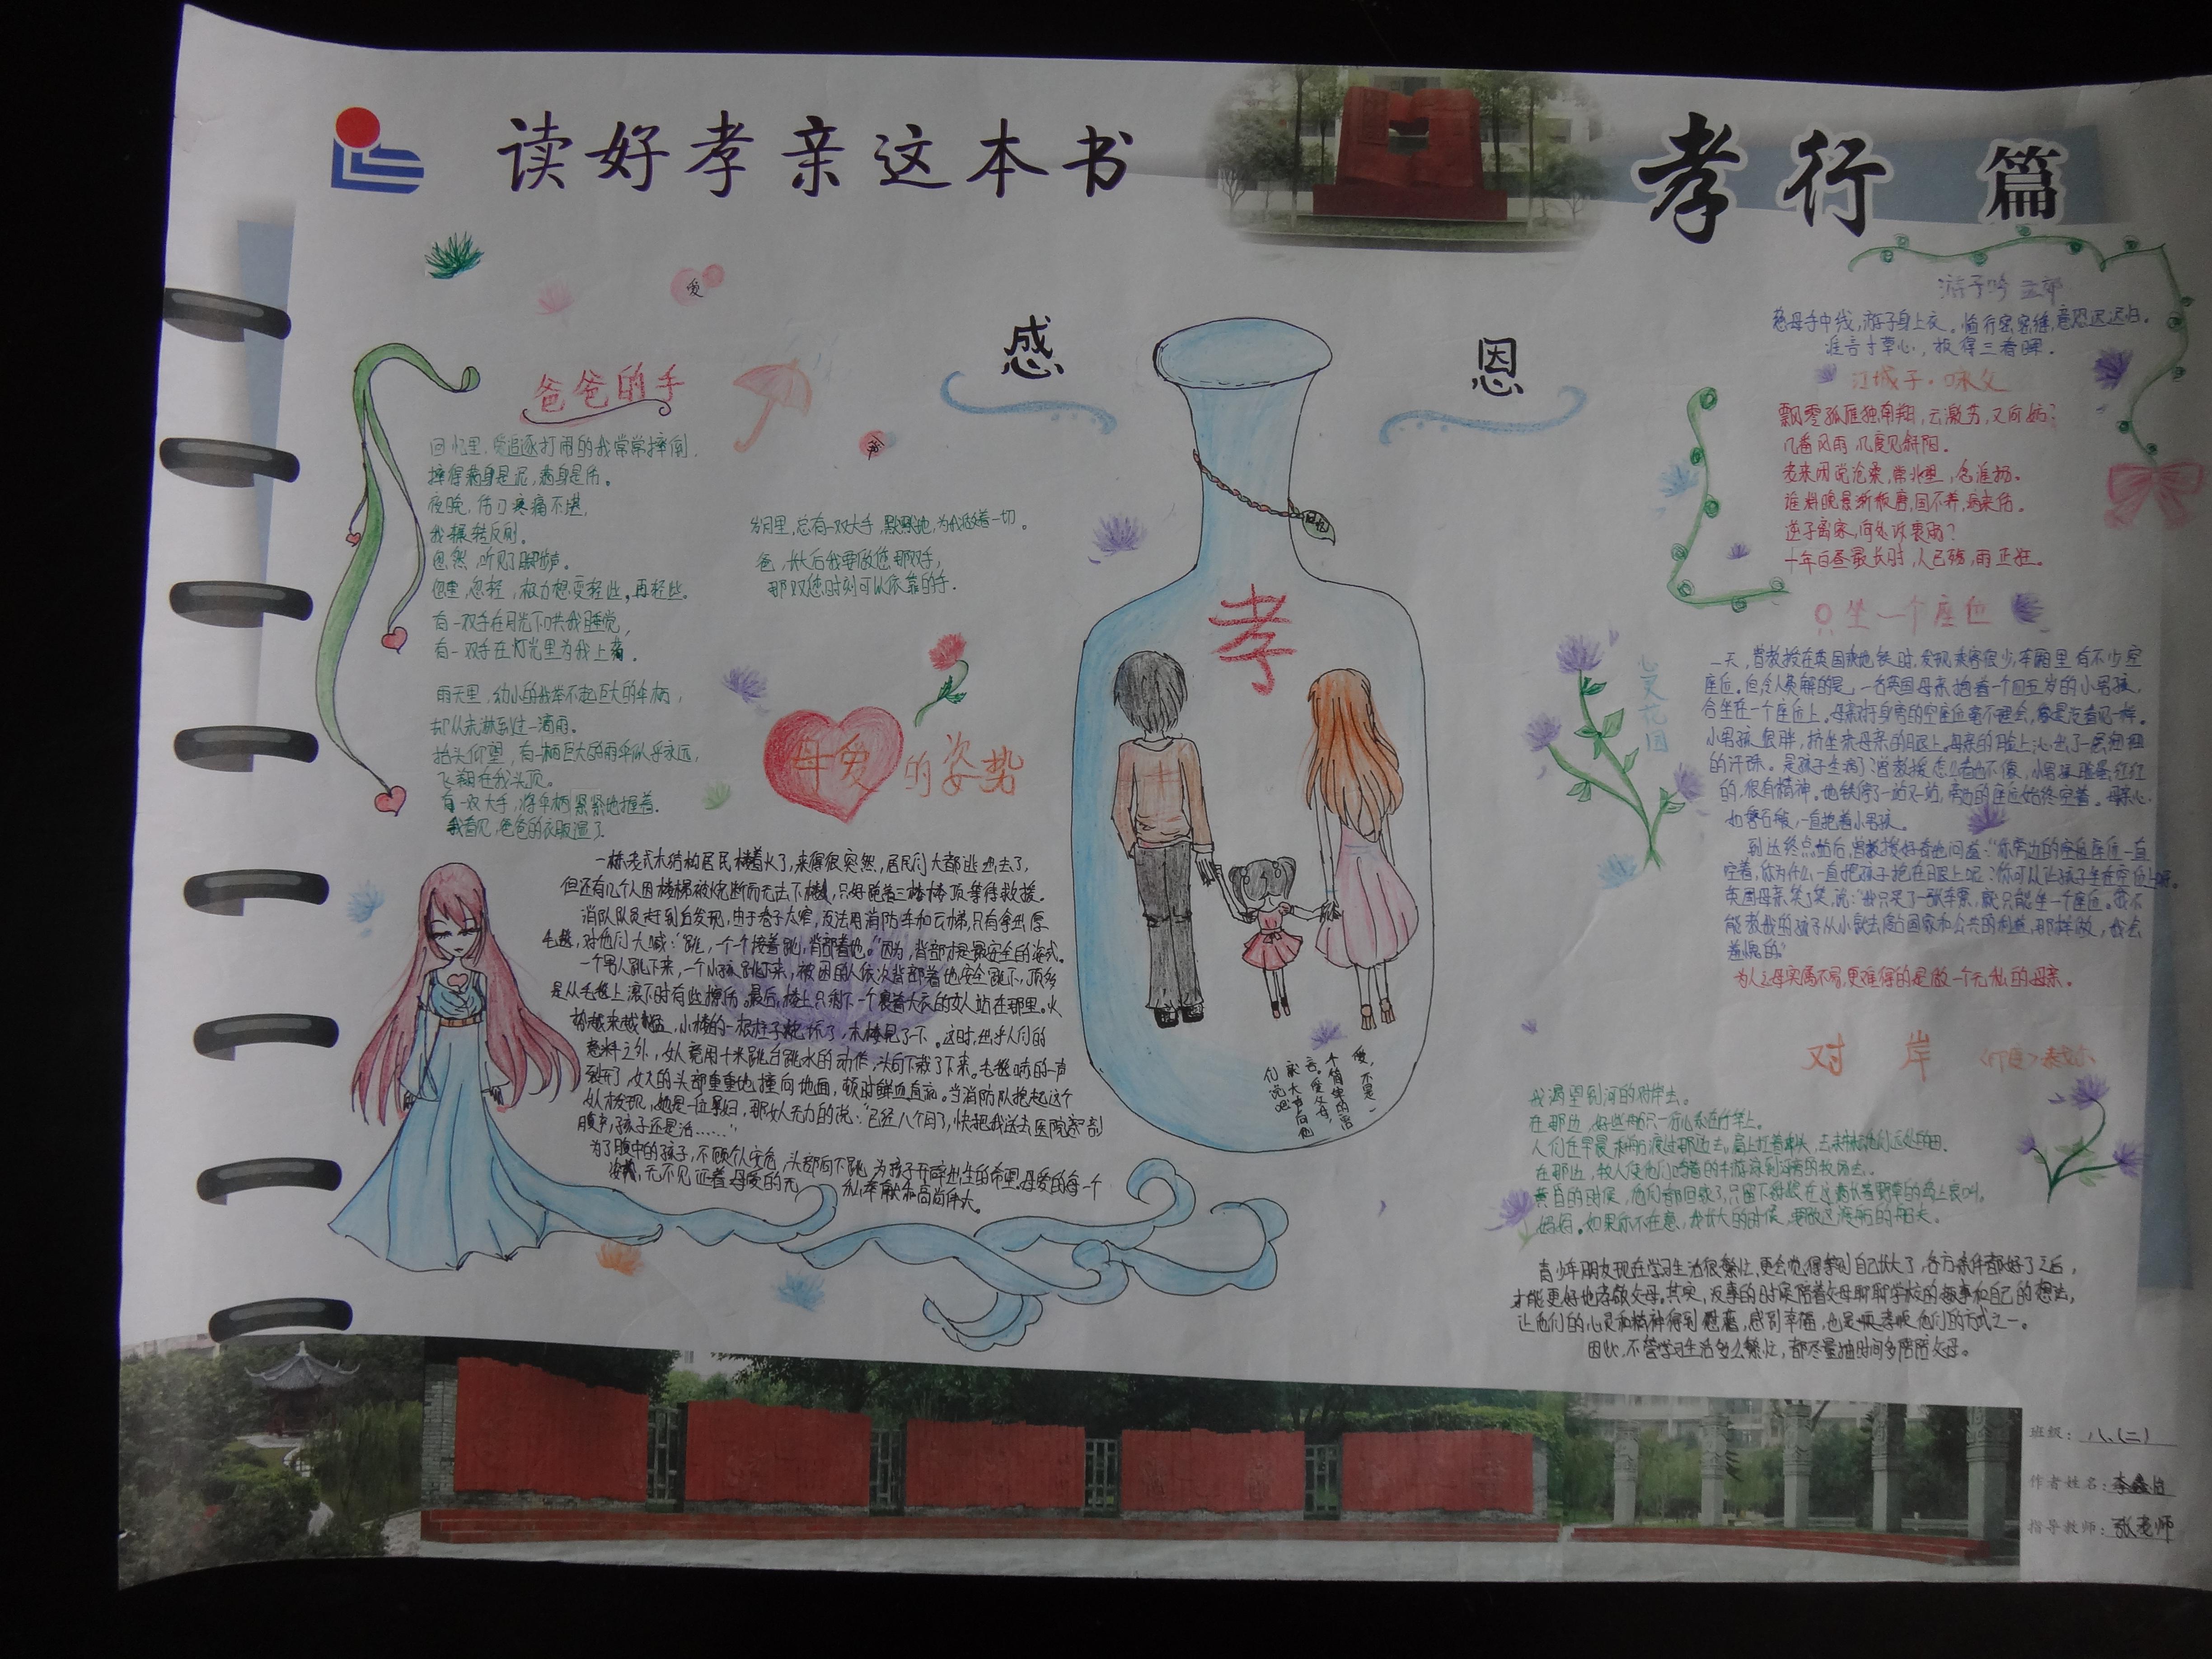 读好孝亲这本书
孝行篇
爱
感恩
爸爸的手
回忆里，爱追逐打闹的我常常摔倒，
摔得满身是泥，满身是伤。
夜晚，伤口疼痛不堪，
我辗转反侧。
忽然，听见了脚步声。
很轻，很轻，极力想变轻些，再轻些。
有一双手在月光下哄我睡觉，
有一双手在灯光里为我上药。
雨天里，幼小的我举不起巨大的伞柄，
却从未淋到过一滴雨。
抬头仰望，有一柄巨大的雨伞似乎永远，
飞翔在我头顶。
有一双大手，将伞柄紧紧地握着。
我看见，爸爸的衣服湿了。
岁月里，总有一双大手，默默地，为我做着一切。
爸，长大后我要做您那双手，
那双您时刻可以依靠的手。
母爱的姿势
一栋老式木结构居民楼着火了，来得很突然，居民们大都逃出去了，
但还有几个人因楼梯被烧断而无法下楼，只好跑着三楼楼顶等待救援。
消防队员赶到后发现，由于巷子太窄，没法用消防车和云梯，只有拿出厚
毛毯，对他们大喊：“跳，一个一个接着跳，背部着地。”因为，背部才是最安全的姿式。
一个男人跳下来，一个小孩跳下来，被困的人依次背部着地安全跳下，顶多
是从毛毯上滚下时有些擦伤。最后，楼上只剩下一个裹着大衣的女人站在那里。火
势越来越猛，小楼的一根柱子烧坏了，木楼晃了一下。这时，出乎人们的
意料之外，女人竟用十米跳台跳水的动作，头向下栽了下来。毛毯嘭的一声
裂开了，女人的头部重重地撞向地面，顿时鲜血直流。当消防队抱起这个
女人发现，她是一位孕妇，那女人无力的说：“已经八个月了，快把我送去医院剖
腹产，孩子还是活……”
为了腹中的孩子，不顾个人安危，头部向下跳，为孩子开辟出生的希望。母爱的每一个
姿势，无不见证着母爱的无私奉献和高尚伟大。
回忆
孝
爱，不是一
个简单的语
言。爱父母，
就大声向他
们说吧
游子吟 孟郊
慈母手中线，游子身上衣。临行密密缝，意恐迟迟归。
谁言寸草心，报得三春晖。
江城子·咏父
飘零孤雁独南翔，云激荡，又何妨？
几番风雨，几度见斜阳。
老来闲说沧桑，常北望，
逆子离家，何处诉衷肠？
十年白昼最长时，人已殇，雨正狂。
只坐一个座位
一天，曾教授在英国乘地铁时，发现乘客很少，车厢里有不少空
座位。但令人费解的是，一名英国母亲抱着一个四五岁的小男孩，
合坐在一个座位上。母亲对身旁的空座位毫不理会，像是没看见一样。
小男孩很胖，挤坐在母亲的腿上。母亲的脸上沁出了一层细细
的汗珠。是孩子生病了？曾教授怎么看也不像，小男孩脸蛋红红
的，很有精神。地铁停了一站又一站，旁边的座位始终空着。母亲心
如磐石般，一直抱着小男孩。
到达终点站后，曾教授好奇地问道：“你旁边的空位座位一直
空着，你为什么一直把孩子抱在腿上呢？你可以让孩子坐在空位上呀。”
英国母亲笑了笑，说：“我只买了一张车票，就只能坐一个座位。我不
能教我的孩子从小就去侵占国家和公共的利益，那样做，我会
羞愧的。”
为人之母实属不易，更难得的是做一个无私的母亲。
对岸 <印度>泰戈尔
我渴望到河的对岸去。
在那边，好些船只一行儿系在竹竿上。
人们在早晨乘船渡过那边去，肩上扛着犁头，去耕耘他们远处的田。
在那边，牧人使他们鸣着的牛游泳到河旁的牧场去。
黄昏的时候，他们都回家了，只留下豺狼在这满长着野草的岛上哀叫。
妈妈。如果你不在意，我长大的时候，要做这渡船的船夫。
青少年朋友现在学习生活很繁忙，更会觉得等到自己长大了，各方条件都好了之后，
才能更好地孝敬父母。其实，没事的时候陪着父母聊聊学校的趣事和自己的想法，
让他们的心灵和精神得到慰藉，感到幸福，也是一项孝顺他们的方式之一。
因此，不管学习生活多么繁忙，都尽量抽时间多陪陪父母。
班级：八、(二)
作者姓名：李鑫
指导教师：张老师